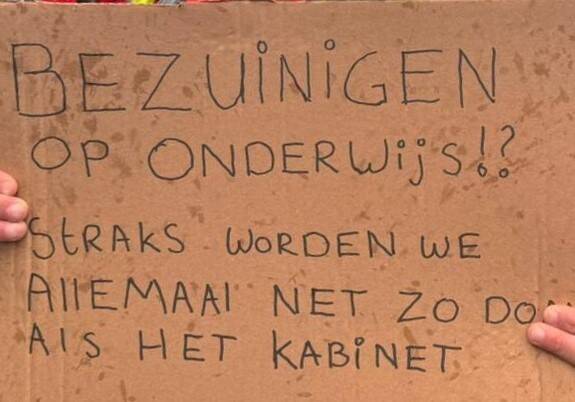 BEZUINIGEN
OP ONDERWijS!?
StRAKS WORDEN WE
AllEMAAl NET ZO
AlS HET KABiNET